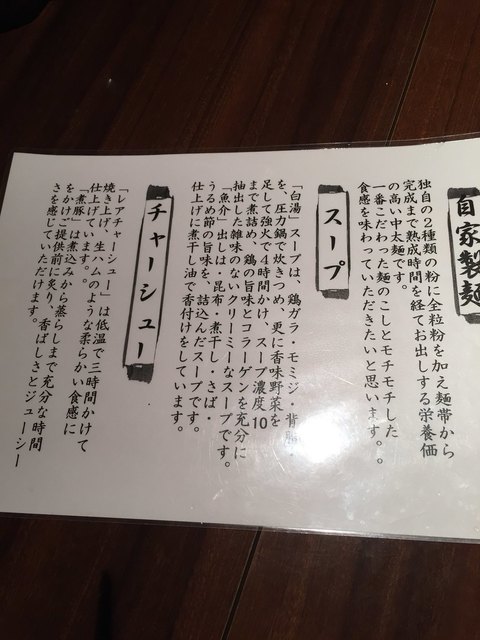 自家製麺
独自の2種類の粉に全粒粉を加え麺帯から
完成まで熟成時間を経てお出しする栄養価
の高い中太麺です。
一番こだわった麺のこしとモチモチした
食感を味わっていただきたいと思います。。
スープ
「白湯」スープは、鶏ガラ・モミジ・背脂・
を、圧力鍋で炊きつめ、更に香味野菜を
足して強火で4時間かけ、スープ濃度10
まで煮詰め、鶏の旨味とコラーゲンを充分に
抽出した雑味のないクリーミーなスープです。
「魚介」出しは・昆布・煮干し・さば・
うるめ節の旨味を、詰込んだスープです。
仕上げに煮干し油で香付けをしています。
チャーシュー
「レアチャーシュー」は低温で三時間かけて
焼き上げ、生ハムのような柔らかい食感に
仕上げています。
「煮豚」は煮込みから蒸らしまで充分な時間
をかけご提供前に炙り、香ばしさとジューシー
さを感じていただけます。